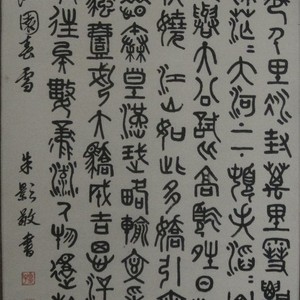 里冰封萬里雪
茫〻大河上下頓失滔
欲與天公試比高須晴日
妖嬈江山如此多嬌引
皇漢武略輸文采
天驕成吉思汗
往矣數風流人物還
園春雪
朱 敬書